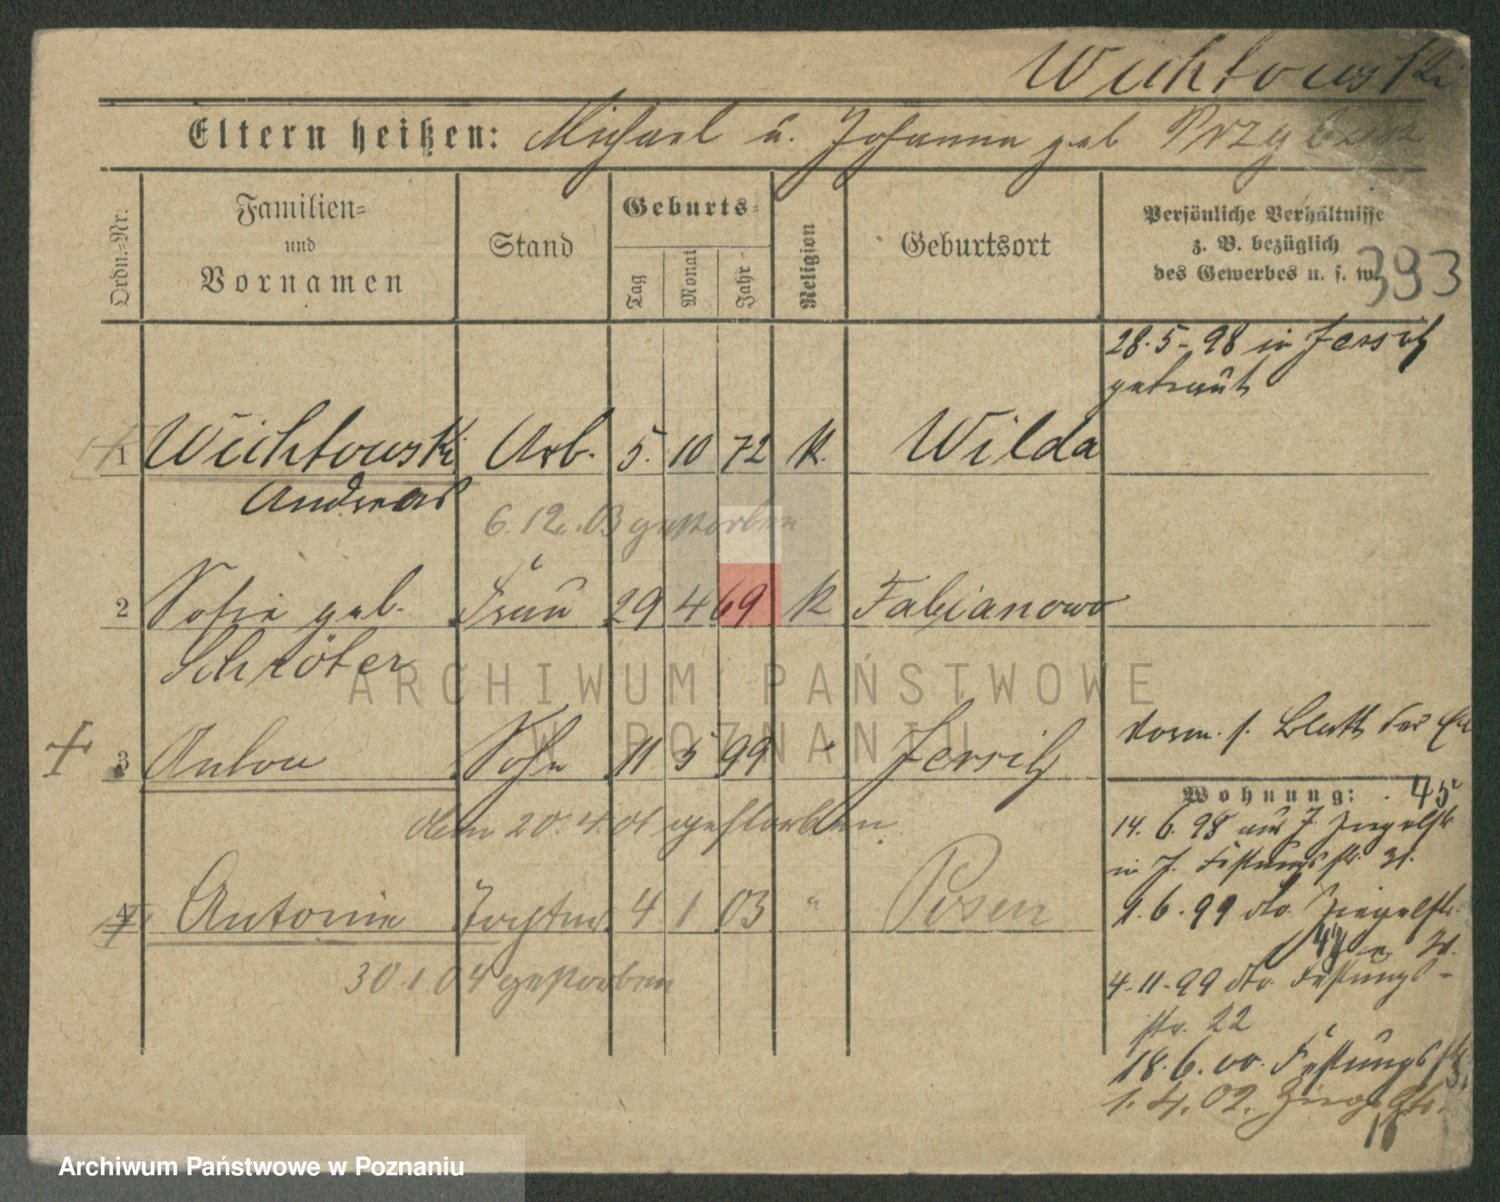 Wichtowski
Eltern heißen: Michael u. Johanna geb
Ordn.-Nr.
Familien- und Vornamen
Stand
Geburts-
Tag
Monat
Jahr
Religion
Geburtsort
Persönliche Verhältnisse
z. B. bezüglich
des Gewerbes u. s. w.
393
28.5.98 in Jersitz
getraut
1 Wichtowski Arb. 5. 10 72 K. Wilda
Andreas
6.12.03 gestorben
2 Sofie geb. Frau 29 4 69 K Fabianowo
Schröter
3 Anton Sohn 11 5 99 " Jersitz
Wohnung: 45
den 20.4.01 gestorben.
14.6.98 aus J. Ziegelstr
in J. Festungsstr. 31.
4 Antonie Tochter 4 1 03 " Posen
1.6.99 do. Ziegelstr.
30.1.04 gestorben
4.11.99 do. Festungs-
str. 22
18.6.00. Festungsstr
1.4.02. Ziegelstr.
16
ARCHIWUM PAŃSTWOWE
W POZNANIU
Archiwum Państwowe w Poznaniu